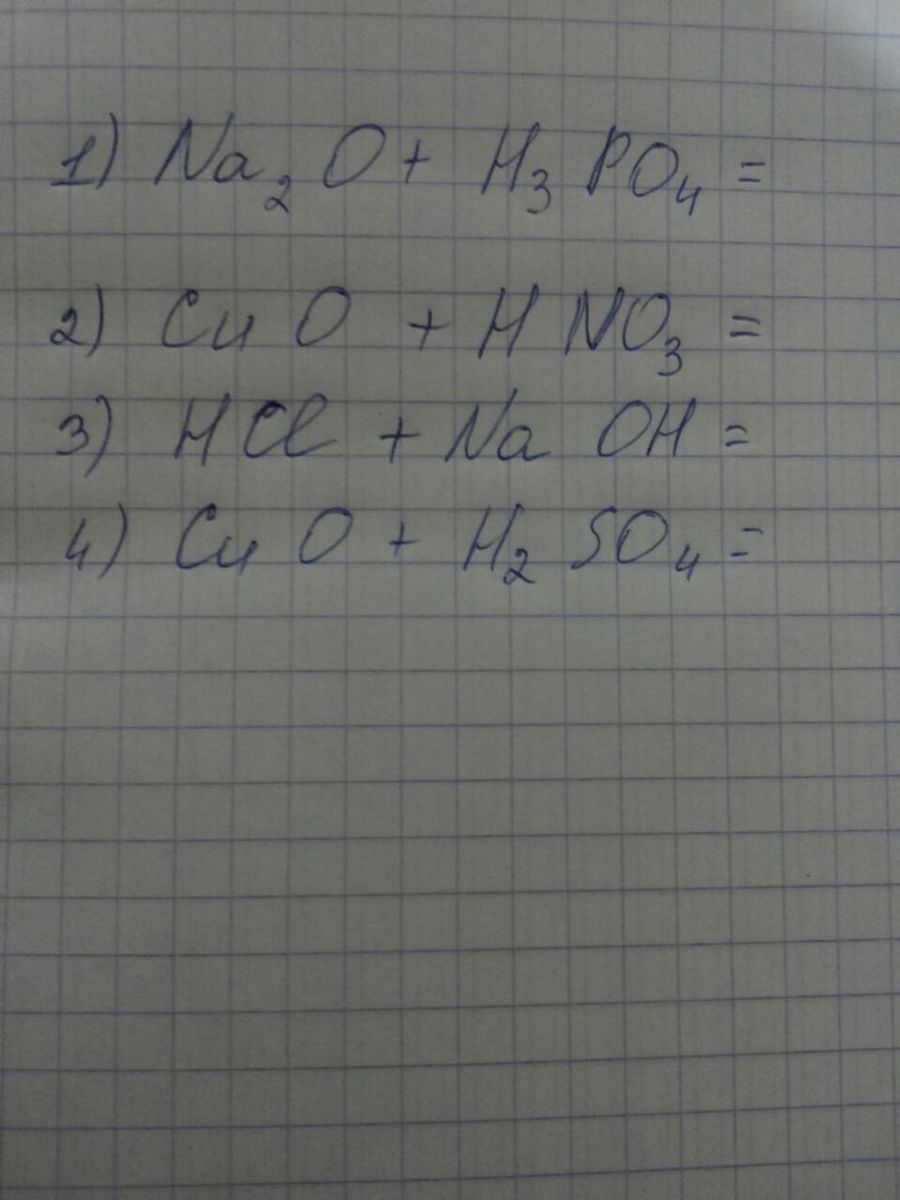 1) Na₂O + H₃PO₄ =
2) CuO + HNO₃ =
3) HCl + NaOH =
4) CuO + H₂SO₄ =